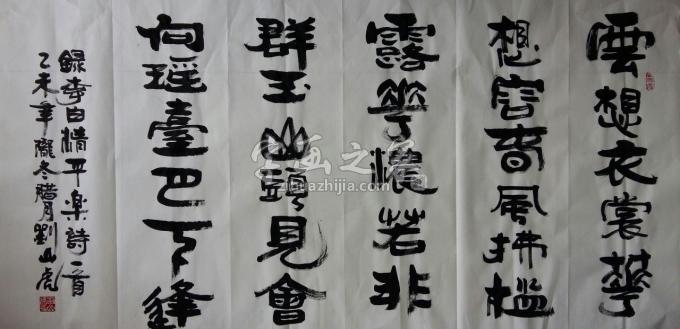 雲想衣裳華
想容春風拂檻
露華濃若非
群玉山頭見會
向瑶臺月下逢
錄李白清平樂詩一首
乙未年隆冬臘月劉山虎
字画之家
zihuazhijia.com